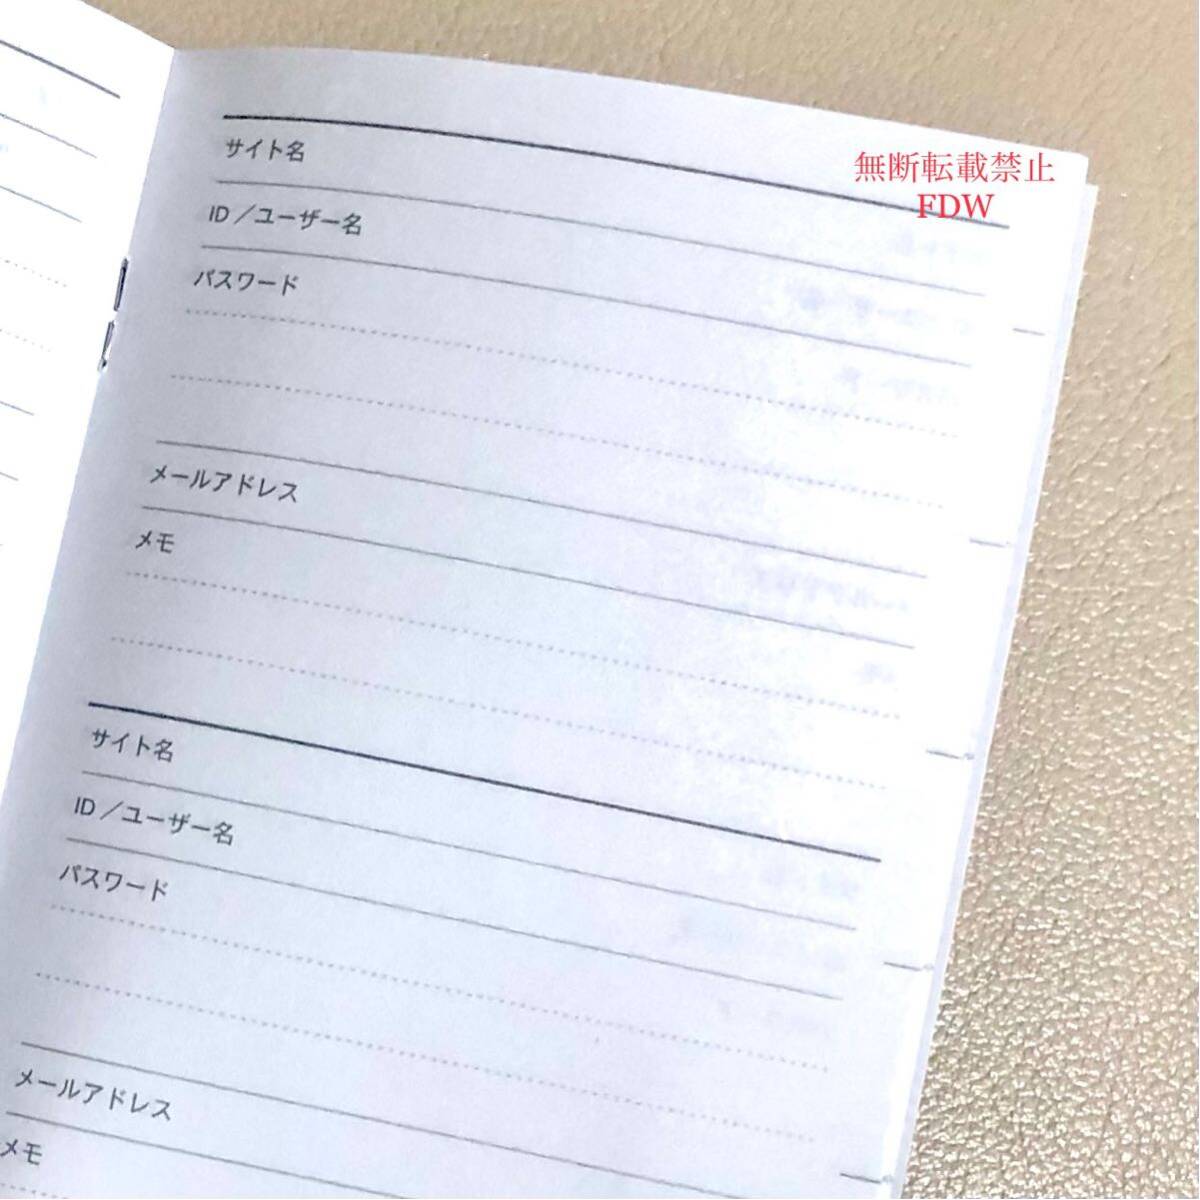 サイト名
無断転載禁止
FDW
ID／ユーザー名
パスワード
メールアドレス
メモ
サイト名
ID／ユーザー名
パスワード
メールアドレス
メモ